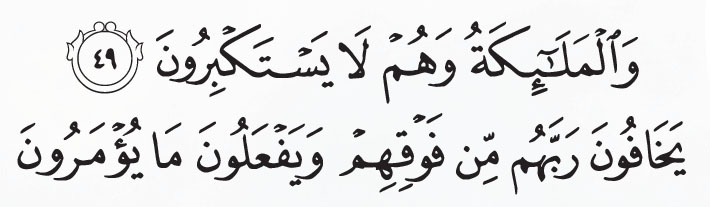 وَٱلْمَلَـٰٓئِكَةُ وَهُمْ لَا يَسْتَكْبِرُونَ ٤٩
يَخَافُونَ رَبَّهُم مِّن فَوْقِهِمْ وَيَفْعَلُونَ مَا يُؤْمَرُونَ